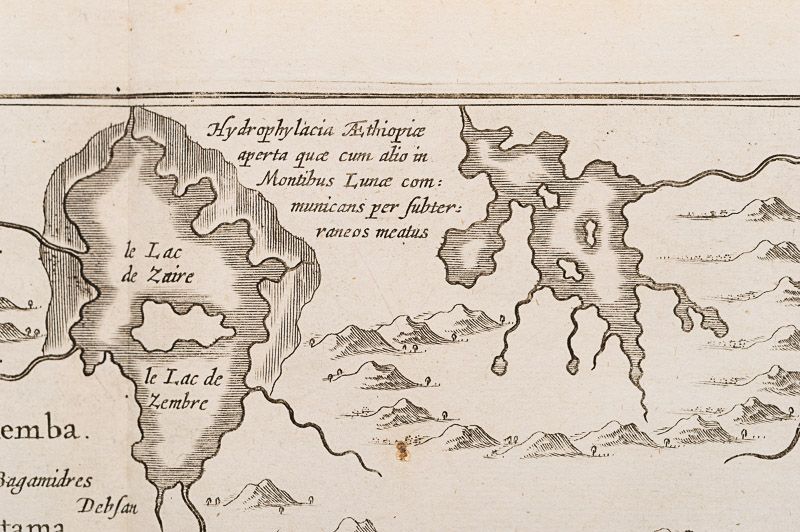 Hydrophylacia Æthiopiæ
aperta quæ cum alio in
Montibus Lunæ com:
municans per subter:
raneos meatus
le Lac
de Zaire
le Lac de
Zembre
emba.
Bagamidres
Debsan
tama